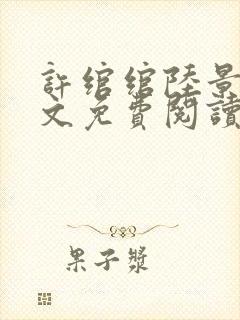 許綰綰陸景
文免費閱讀
果子漿